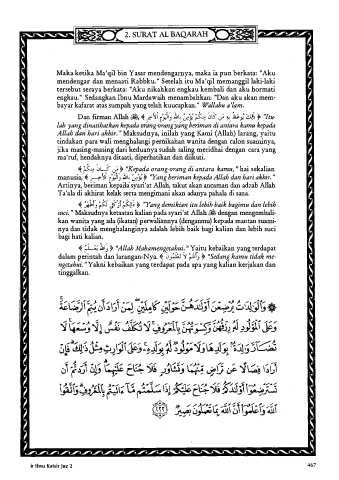 2. SURAT AL BAQARAH
Maka ketika Ma'qil bin Yasar mendengarnya, maka ia pun berkata: "Aku
mendengar dan menaati Rabbku." Setelah itu Ma'qil memanggil laki-laki
tersebut seraya berkata: "Aku nikahkan engkau kembali dan aku hormati
engkau." Sedangkan Ibnu Mardawaih menambahkan: "Dan aku akan mem-
bayar kafarat atas sumpah yang telah kuucapkan." Wallahu a'lam.
Dan firman Allah ﷻ, ﴿ ذَلِكَ يُوعَظُ بِهِ مَن كَانَ مِنكُمْ يُؤْمِنُ بِاللَّهِ وَالْيَوْمِ الْآخِرِ ﴾ "Itu-
lah yang dinasihatkan kepada orang-orang yang beriman di antara kamu kepada
Allah dan hari akhir." Maksudnya, inilah yang Kami (Allah) larang, yaitu
tindakan para wali menghalangi pernikahan wanita dengan calon suaminya,
jika masing-masing dari keduanya sudah saling meridhai dengan cara yang
ma'ruf, hendaknya ditaati, diperhatikan dan diikuti.
﴿ مَن كَانَ مِنكُمْ ﴾ "Kepada orang-orang di antara kamu," hai sekalian
manusia, ﴿ يُؤْمِنُ بِاللَّهِ وَالْيَوْمِ الْآخِرِ ﴾ "Yang beriman kepada Allah dan hari akhir."
Artinya, beriman kepada syari'at Allah, takut akan ancaman dan adzab Allah
Ta'ala di akhirat kelak serta mengimani akan adanya pahala di sana.
﴿ ذَلِكُمْ أَزْكَى لَكُمْ وَأَطْهَرُ ﴾ "Yang demikian itu lebih baik bagimu dan lebih
suci." Maksudnya ketaatan kalian pada syari'at Allah ﷻ dengan mengembali-
kan wanita yang ada (ikatan) perwaliannya (denganmu) kepada mantan suami-
nya dan tidak menghalanginya adalah lebih baik bagi kalian dan lebih suci
bagi hati kalian.
﴿ وَاللَّهُ يَعْلَمُ ﴾ "Allah Mahamengetahui." Yaitu kebaikan yang terdapat
dalam perintah dan larangan-Nya. ﴿ وَأَنتُمْ لَا تَعْلَمُونَ ﴾ "Sedang kamu tidak me-
ngetahui." Yakni kebaikan yang terdapat pada apa yang kalian kerjakan dan
tinggalkan.
۞ وَالْوَالِدَاتُ يُرْضِعْنَ أَوْلَادَهُنَّ حَوْلَيْنِ كَامِلَيْنِ لِمَنْ أَرَادَ أَن يُتِمَّ الرَّضَاعَةَ
وَعَلَى الْمَوْلُودِ لَهُ رِزْقُهُنَّ وَكِسْوَتُهُنَّ بِالْمَعْرُوفِ لَا تُكَلَّفُ نَفْسٌ إِلَّا وُسْعَهَا لَا
تُضَارَّ وَالِدَةٌ بِوَلَدِهَا وَلَا مَوْلُودٌ لَّهُ بِوَلَدِهِ وَعَلَى الْوَارِثِ مِثْلُ ذَلِكَ فَإِنْ
أَرَادَا فِصَالًا عَن تَرَاضٍ مِّنْهُمَا وَتَشَاوُرٍ فَلَا جُنَاحَ عَلَيْهِمَا وَإِنْ أَرَدتُّمْ أَن
تَسْتَرْضِعُوا أَوْلَادَكُمْ فَلَا جُنَاحَ عَلَيْكُمْ إِذَا سَلَّمْتُم مَّا آتَيْتُم بِالْمَعْرُوفِ وَاتَّقُوا
اللَّهَ وَاعْلَمُوا أَنَّ اللَّهَ بِمَا تَعْمَلُونَ بَصِيرٌ ﴿٢٣٣﴾
ir Ibnu Katsir Juz 2
467